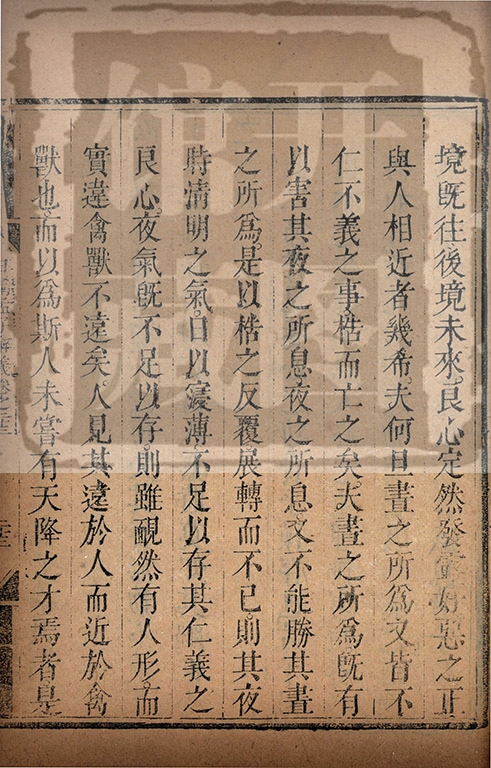 境既往後境未來良心定然發實好惡之正
與人相近者幾希夫何旦晝之所爲又皆不
仁不義之事梏而亡之矣夫晝之所爲既有
以害其夜之所息夜之所息又不能勝其晝
之所爲是以梏之反覆展轉而不已則其夜
時清明之氣日以寖薄不足以存其仁義之
良心夜氣既不足以存則雖靦然有人形而
實違禽獸不遠矣人見其遠於人而近於禽
獸也而以爲斯人未嘗有天降之才焉者是